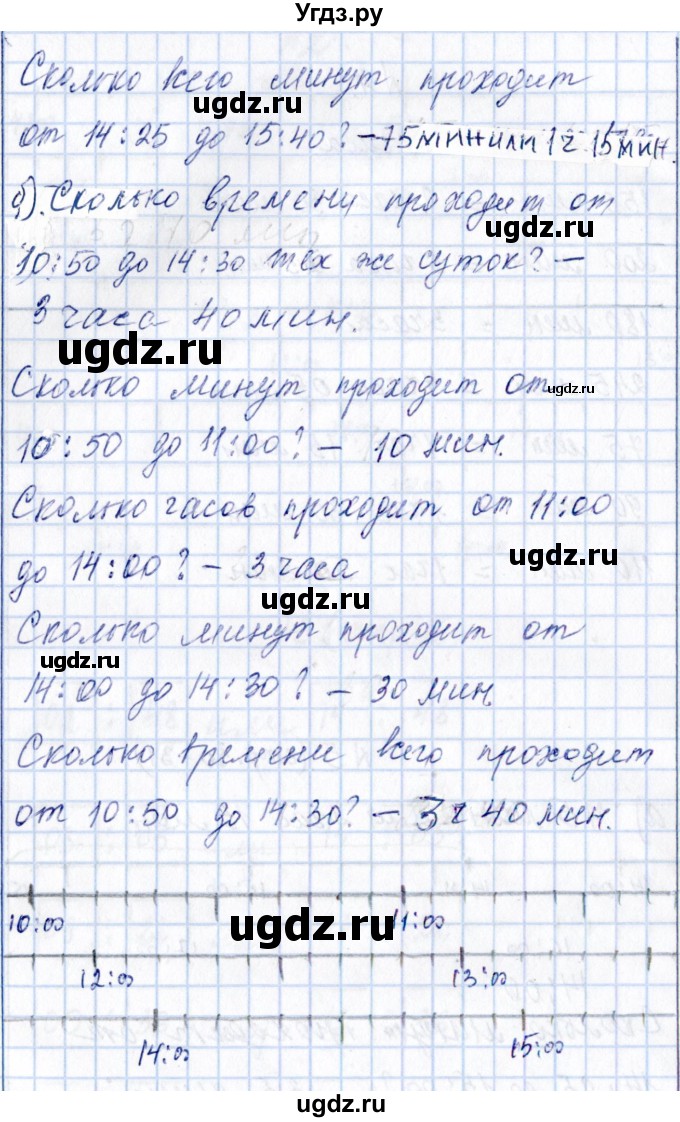 Угдз.ру
Сколько всего минут проходит
ugdz.ru
от 14:25 до 15:40? – 75 мин или 1 ч 15 мин.
б). Сколько времени проходит от
ugdz.ru
10:50 до 14:30 тех же суток? –
3 часа 40 мин.
ugdz.ru
Сколько минут проходит от
ugdz.ru
10:50 до 11:00? – 10 мин.
Сколько часов проходит от 11:00
ugdz.ru
до 14:00? – 3 часа
ugdz.ru
Сколько минут проходит от
ugdz.ru
14:00 до 14:30? – 30 мин
Сколько времени всего проходит
от 10:50 до 14:30? – 3 ч 40 мин.
ugdz.ru
10:00 11:00
12:00 13:00
14:00 15:00
ugdz.ru